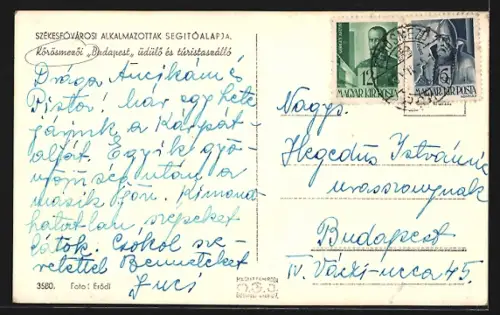 SZÉKESFŐVÁROSI ALKALMAZOTTAK SEGITŐALAPJA.
Kőrösmezői „Budapest„ üdülő és túristaszálló
Drága Ancikám és
Pista! Már egy hete
járjuk a Kárpát-
alját. Egyik gyö-
nyörűség után a
másik jön. Kimond-
hatatlan szépeket
látok. Csókol sze-
retettel Benneteket
Juci
3580. Foto: Erdői
12
MAGYAR KIR. POSTA
6
MAGYAR KIR. POSTA
Nagys.
Hegedűs Istvánné
urasszonynak
Budapest
IV. Váci-ucca 45.